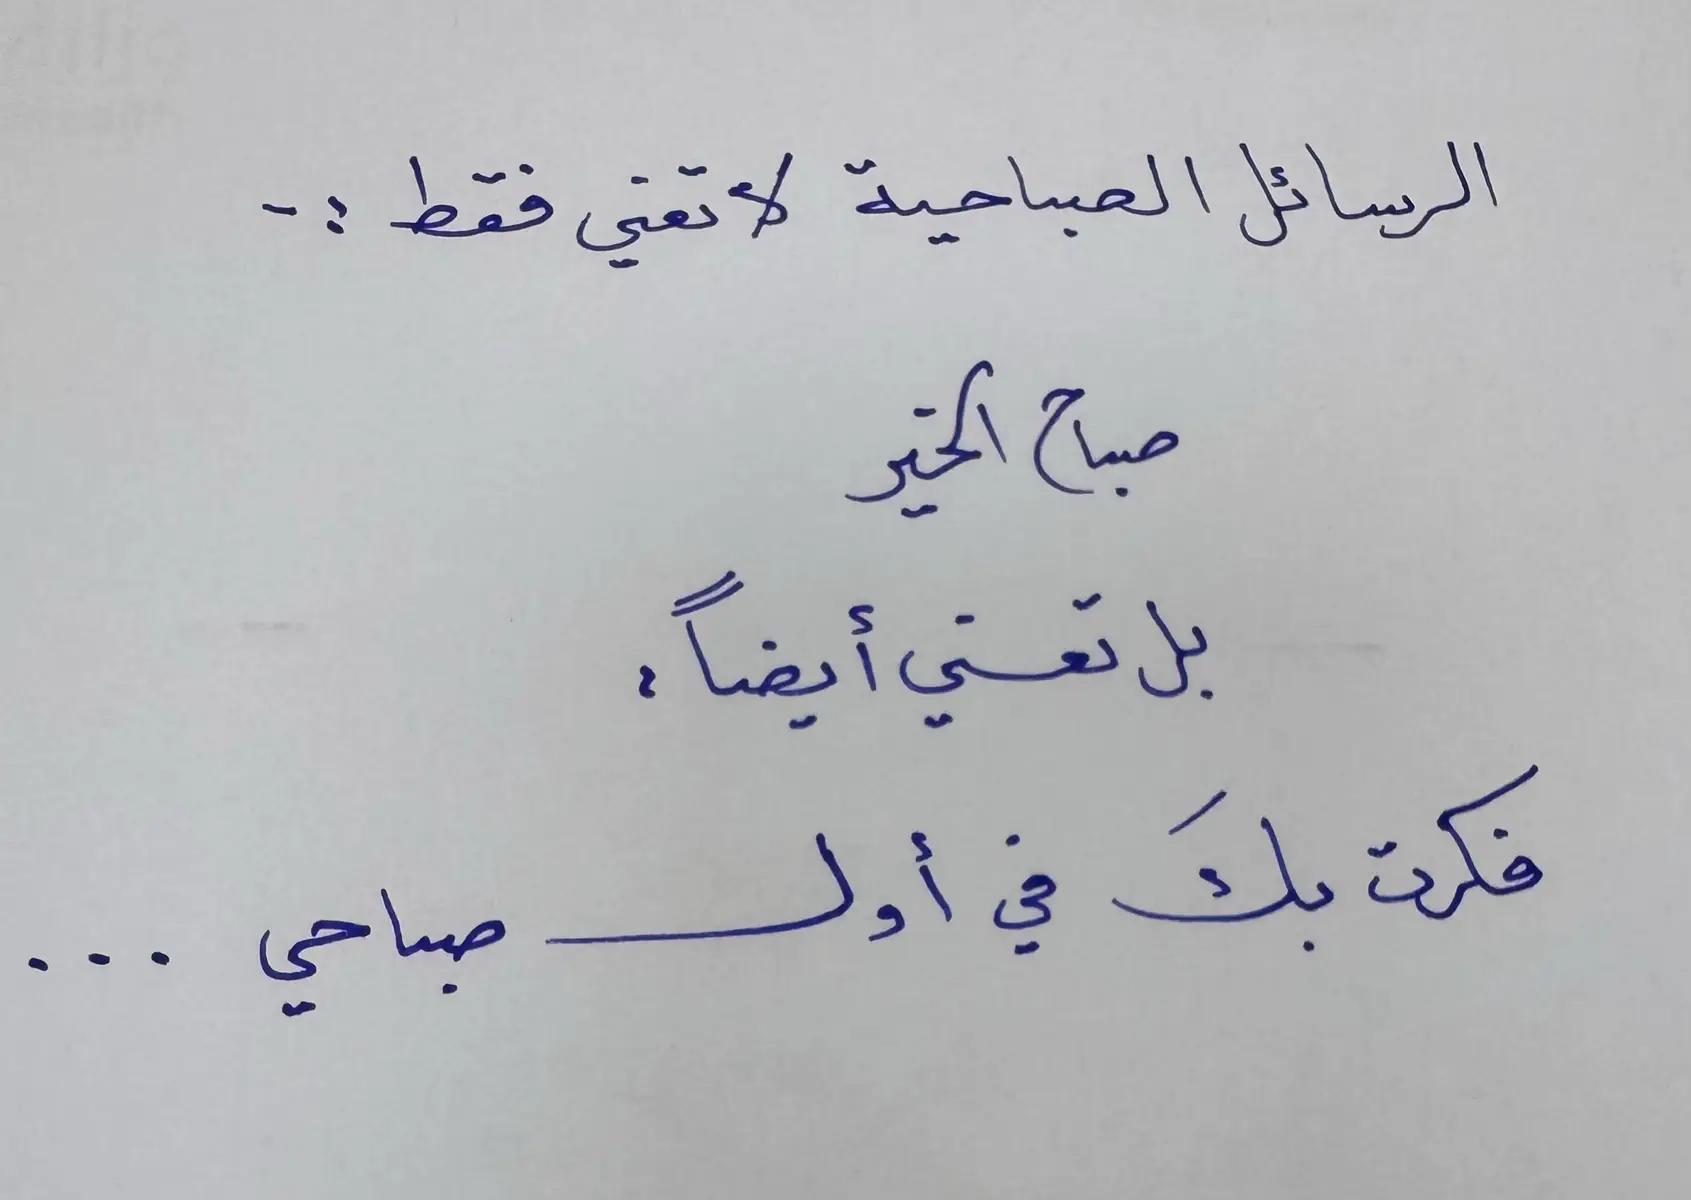 الرسائل الصباحية لا تعني فقط :-
صباح الخير
بل تعني أيضاً :
فكرت بكَ في أول صباحي ...